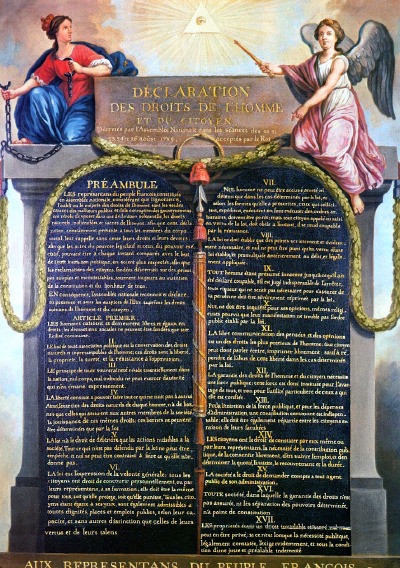 DÉCLARATION
DES DROITS DE L'HOMME
ET DU CITOYEN,
Décrétés par l'Assemblée Nationale dans les séances des 20 21
23 24 et 26 août 1789, acceptés par le Roi
PRÉAMBULE
LES représentans du peuple François, constitués
en assemblée nationale, considérant que l'ignorance,
l'oubli ou le mépris des droits de l'homme sont les seules
causes des malheurs publics et de la corruption des gouvernemens
constamment présente à tous les membres du corps
social, leur rappelle sans cesse leurs droits et leurs devoirs;
afin que les actes du pouvoir législatif et ceux du pouvoir exé-
cutif, pouvant être à chaque instant comparés avec le but
de toute institution politique, en soient plus respectés; afin que
les réclamations des citoyens, fondées désormais sur des princi-
pes simples et incontestables, tournent toujours au maintien
de la constitution et du bonheur de tous.
EN conséquence, l'assemblée nationale reconnoît et déclare
en présence et sous les auspices de l'Être suprême les droits
suivans de l'homme et du citoyen.
ARTICLE PREMIER.
LES hommes naissent et demeurent libres et égaux en
droits, les distinctions sociales ne peuvent être fondées que sur
l'utilité commune.
II.
LE but de toute association politique est la conservation des droits
naturels et imprescriptibles de l'homme; ces droits sont la liberté,
la propriété, la sureté, et la résistance à l'oppression.
III.
LE principe de toute souveraineté réside essentiellement dans
la nation, nul corps, nul individu ne peut exercer d'autorité
qui n'en émane expressément.
IV.
LA liberté consiste à pouvoir faire tout ce qui ne nuit pas à autrui
Ainsi, l'exercice des droits naturels de chaque homme, n'a de bor-
nes que celles qui assurent aux autres membres de la société
la jouissance de ces mêmes droits; ces bornes ne peuvent
être déterminées que par la loi
V.
LA loi n'a le droit de défendre que les actions nuisibles à la
société. Tout ce qui n'est pas défendu par la loi ne peut être
empêché, et nul ne peut être contraint à faire ce qu'elle n'or-
donne pas.
VI.
LA loi est l'expression de la volonté générale; tous les
citoyens ont droit de concourir personnellement, ou par
leurs représentans, à sa formation; elle doit être la même
pour tous, soit qu'elle protège, soit qu'elle punisse. Tous les citoy-
ens étant égaux à ses yeux, sont également admissibles à
toutes dignités, places et emplois publics, selon leur ca-
pacité, et sans autres distinction que celles de leurs
vertus et de leurs talens
VII.
NUL homme ne peut être accusé, arrêté ni
détenu que dans les cas déterminés par la loi, et
selon les formes qu'elle a prescrites, ceux qui sollici-
tent, expédient, exécutent ou font exécuter des ordres arbi-
traires, doivent être punis; mais tout citoyen appelé ou saisi
en vertu de la loi, doit obéir à l'instant, il se rend coupable
par la résistance.
VIII.
LA loi ne doit établir que des peines strictement et évidem-
ment nécessaires, et nul ne peut être puni qu'en vertu d'une
loi établie et promulguée antérieurement au délit, et légale-
ment appliquée.
IX.
TOUT homme étant présumé innocent jusqu'à ce qu'il ait
été déclaré coupable, s'il est jugé indispensable de l'arrêter,
toute rigueur qui ne seroit pas nécessaire pour s'assurer de
sa personne doit être sévèrement réprimée par la loi.
X.
NUL ne doit être inquiété pour ses opinions, mêmes religi-
euses pourvu que leur manifestation ne trouble pas l'ordre
public établi par la loi.
XI.
LA libre communication des pensées et des opinions
est un des droits les plus précieux de l'homme; tout citoyen
peut donc parler, écrire, imprimer librement, sauf à ré-
pondre de l'abus de cette liberté dans les cas déterminés
par la loi.
XII.
LA garantie des droits de l'homme et du citoyen nécessite
une force publique; cette force est donc instituée pour l'avan-
tage de tous, et non pour l'utilité particulière de ceux à
qui elle est confiée.
XIII.
POUR l'entretien de la force publique, et pour les dépenses
d'administration, une contribution commune est indispen-
sable; elle doit être également répartie entre les citoyens en
raison de leurs facultés.
XIV.
LES citoyens ont le droit de constater par eux même ou
par leurs représentans, la nécessité de la contribution pub-
lique, de la consentir librement, d'en suivre l'emploi, et d'en
déterminer la quotité, l'assiette, le recouvrement et la durée.
XV.
LA société a le droit de demander compte à tout agent
public de son administration.
XVI.
TOUTE société, dans laquelle la garantie des droits n'est
pas assurée, ni la séparation des pouvoirs déterminée,
n'a point de constitution.
XVII.
LES propriétés étant un droit inviolable et sacré, nul ne
peut en être privé, si ce n'est lorsque la nécessité publique,
légalement constatée, l'exige évidemment, et sous la condi-
tion d'une juste et préalable indemnité
AUX REPRESENTANS DU PEUPLE FRANCOIS